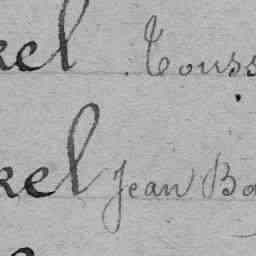 kel Touss
kel Jean Ba